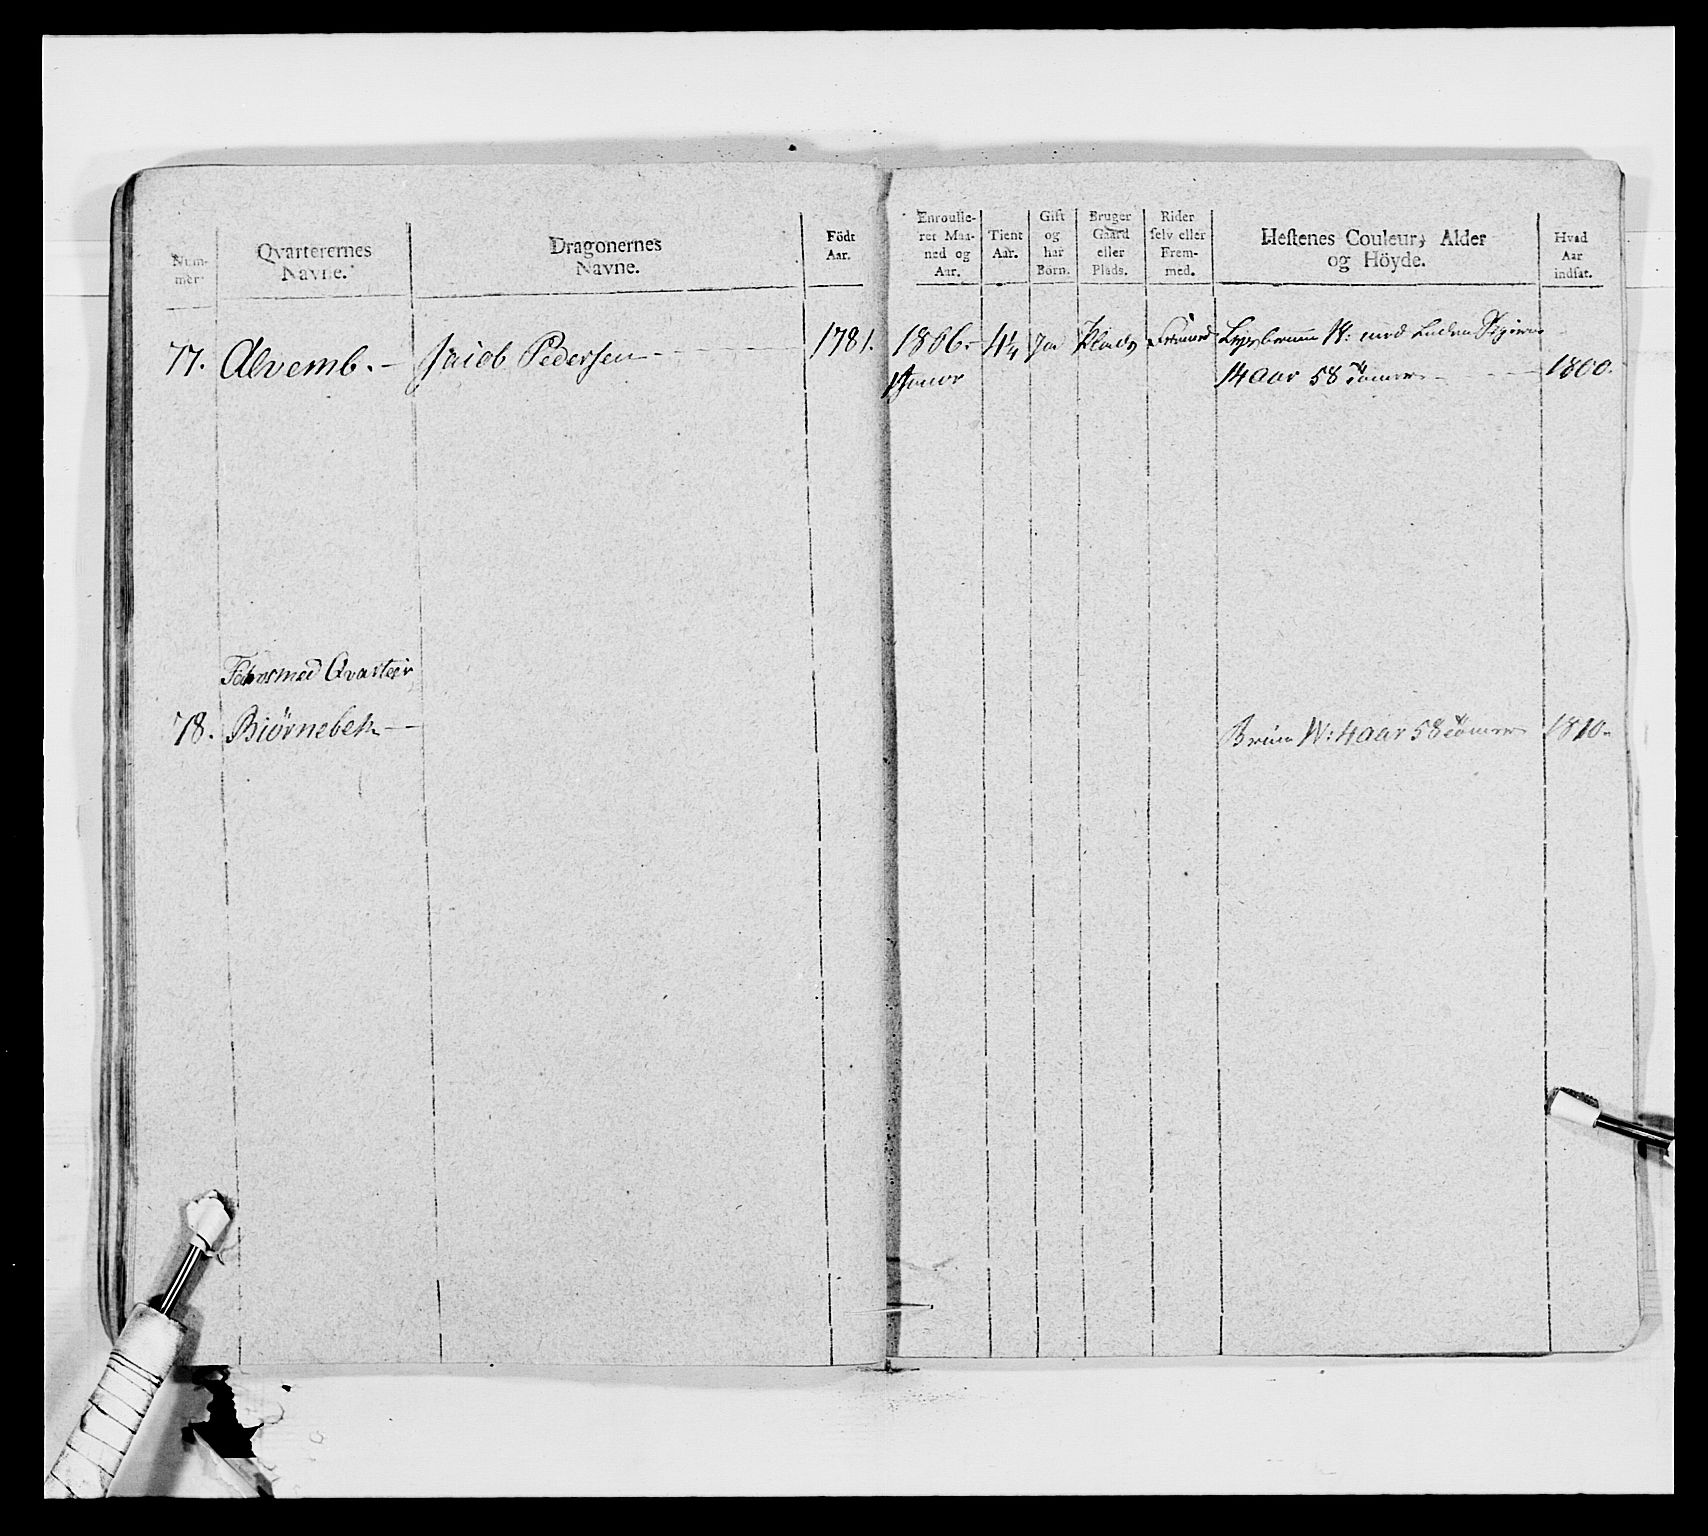 Num-
mer
Qvarterernes
Navne.
Dragonernes
Navne.
Födt
Aar.
Enroulle-
ret Maa-
ned og
Aar.
Tient
Aar.
Gift
og
har
Börn.
Bruger
Gaard
eller
Plads.
Rider
selv eller
Frem-
med.
Hestenes Couleur, Alder
og Höyde.
Hvad
Aar
indsat.
77. Alvemb. Jacob Pedersen 1781. 1806. 4¼ Ja Plads Fremed Lysebruun W: med
Januar 14 aar 58 Tomer 1800.
Qvarteer
78. Biörnebek Bruun W: 4 aar 58 Tomer 1810.